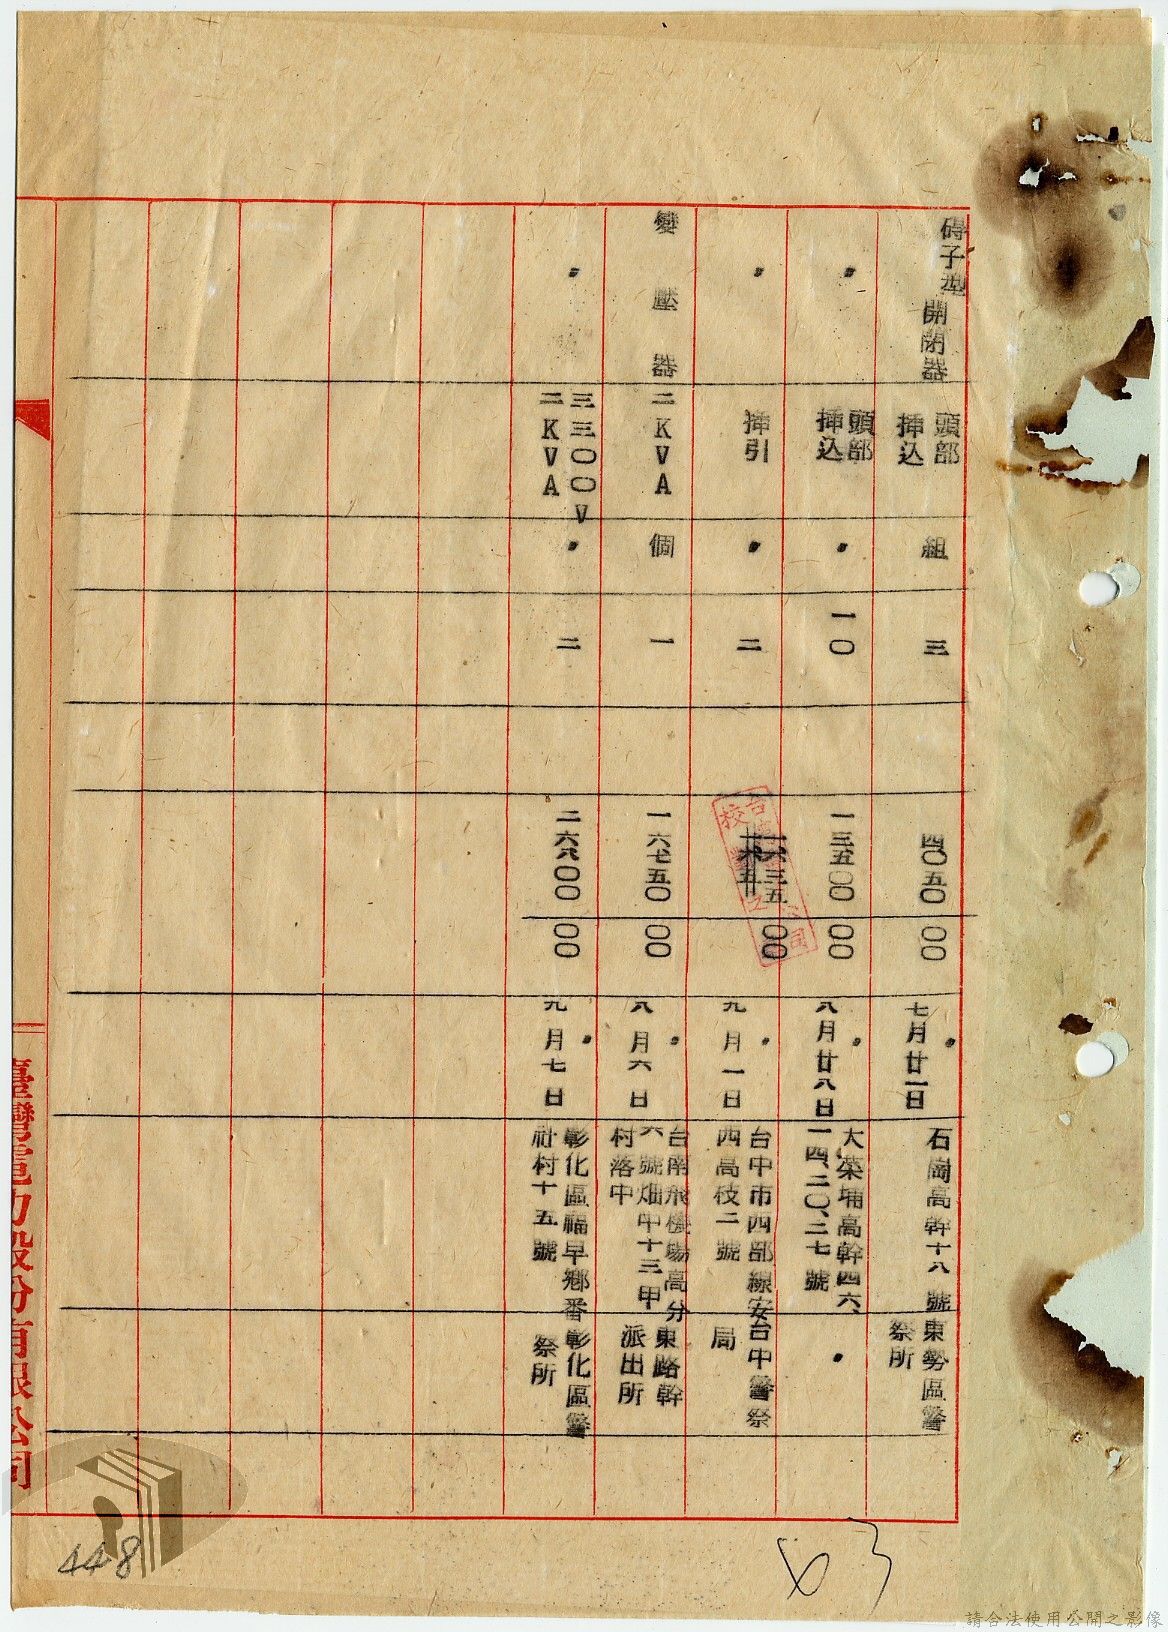 碍子型開閉器
頭部
挿込
組
三
四〇五〇
〇〇
〃
七月廿一日
石崗高幹十八號
東勢區警
祭所
〃
頭部
挿込
〃
一〇
一三五〇〇
〇〇
〃
八月廿八日
大菜埔高幹四六、
一四、二〇、三七號
〃
〃
挿引
〃
二
一六三五
〇〇
〃
九月一日
台中市西部線安
西高枝二號
台中警祭
局
變壓器
二KVA
個
一
一六七五〇
〇〇
〃
八月六日
台南飛機場高分
六號畑中十三甲
村落中
東路幹
派出所
〃
三三〇〇V
二KVA
〃
二
二六八〇〇
〇〇
〃
九月七日
彰化區福早鄉番
社村十五號
彰化區警
祭所
臺灣電力股份有限公司
448
63
請合法使用公開之影像